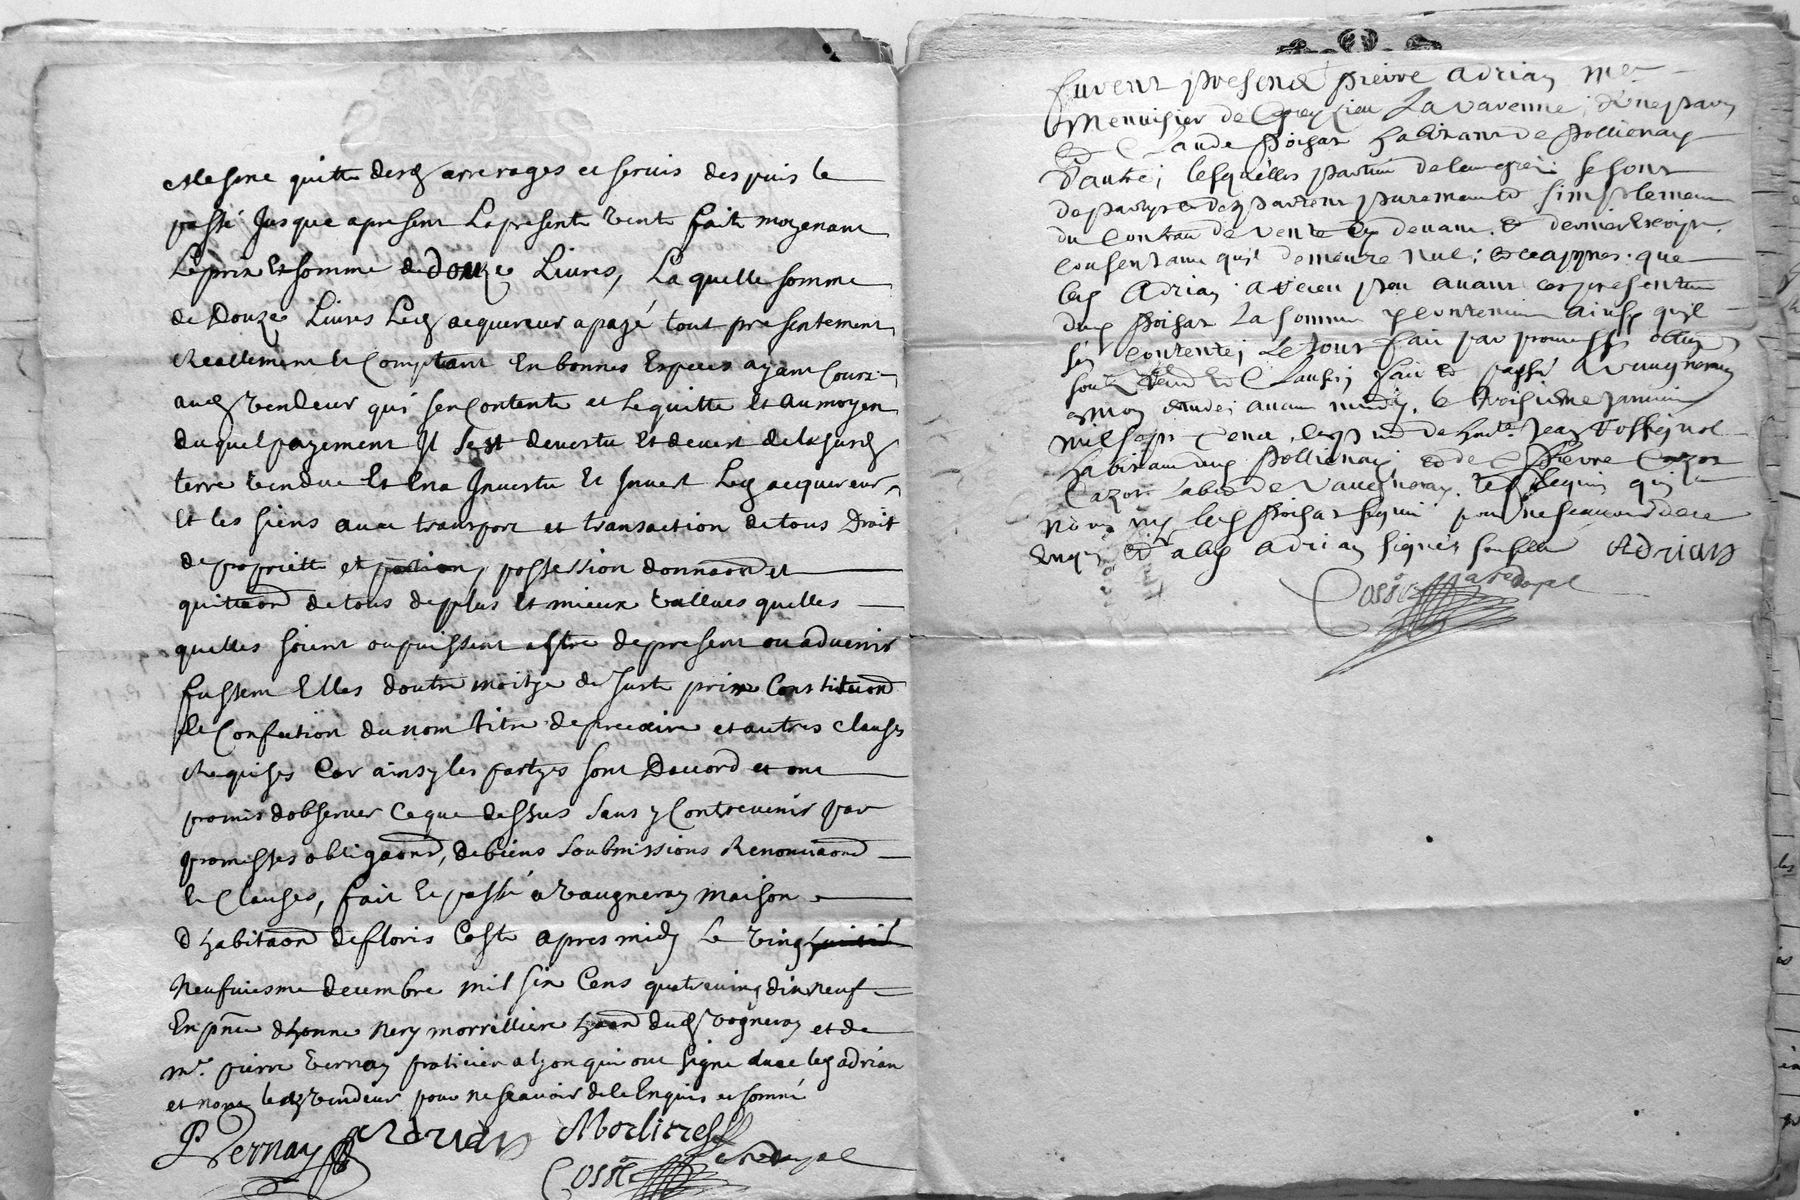 Mesme quitte desd arrerages et servis despuis le
passé Jusque apresent Lapresente vente fait moyenant
Leprix Et somme de douze Livres, La quelle somme
de Douze Livres Led acquereur a payé tout presentement
Reallement Et Comptant En bonnes Especes ayant Cours
aud vendeur qui sen Contente et Lequitte Et au moyen
duquel payement Il Sest devestu Et devest de lasusd
terre vendue Et En a Investu Et Invest Led acquereur
Et les siens avec transport et transaction detous Droit
depropriette et possession donnaon et
quittaon detous deplus Et mieux vallues quelles
quelles soient ou puissent estre depresent ou advenir
fussent Elles doutre moitye de Juste prix Constituon
Et Confection du nom titre deprecaire et autres clauses
Requises Car ainsy les partyes sont Daccord et ont
promis dobserver Ceque dessus sans y Contrevenir par
promesses obligaons, debiens soubmissions Renonciaons
Et Clauses, fait Et passé a vaugneray maison
d habitaon de floris Coste apres midy Le ving
Neufviesme decembre mil six Cens quatreving dix neuf
En pnce dhonne Nery morrelliere haant dud vogneray et de
mr. pierre vernay praticien a lyon qui ont signé avec led adrian
et non led vendeur pour ne scavoir de ce Enquis et sommé
PVernay Adrian Morlieres
Coste
furent presend pierre adrian me
Menuisier de La varenne; d'une part
Et Claude poisat habitant de pollienay
d'autre; lesquelles parties de leur gré se sont
departys et departent purement et simplement
du Contrat de vente cy devant et dernier escript
consentant quil demeure nul; que
led adrian a receu peu avant ces presentes
dud poisat La somme y contenue ainsy quil
sen contente; Le tout fait par promesses
soub et Clauses; fait et passé a vaugneray
mon estude; avant midy, le troisieme janvier
mil sept Cent, en de Jean
habitant aud pollienay et de pierre
habt de vaugneray,
led poisat pour ne scavoir de ce
enquis et a led adrian signé Adrian
Coste